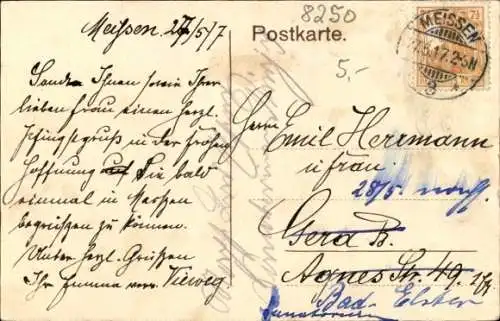 Meissen. 27/5/17
8250
Postkarte.
5,-
MEISSEN
27.5.17.2-3N
7½
Sende Ihnen sowie Ihrer
lieben Frau einen herzl.
Pfingstgruß in der frohen
Hoffnung Sie bald
einmal in Meißen
begrüßen zu können.
Unter herzl. Grüßen
Ihr Vieweg
Herrn Emil Herrmann
u frau.
28/5.
Gera R.
Agnes Str. 49.
Bad Elster
Sanatorium